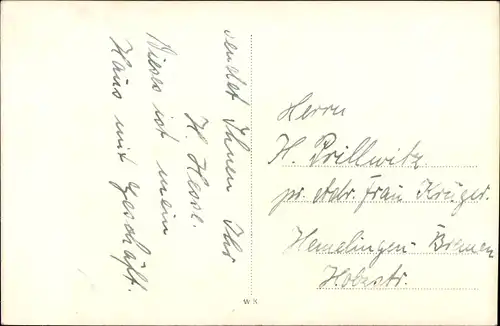 sendet Ihnen Ihr
H. Hesse.
Dieses ist mein
Haus mit Geschäft.
Herrn
H. Prillwitz
pr. Adr. Frau Krüger.
Hemelingen-Bremen
W S